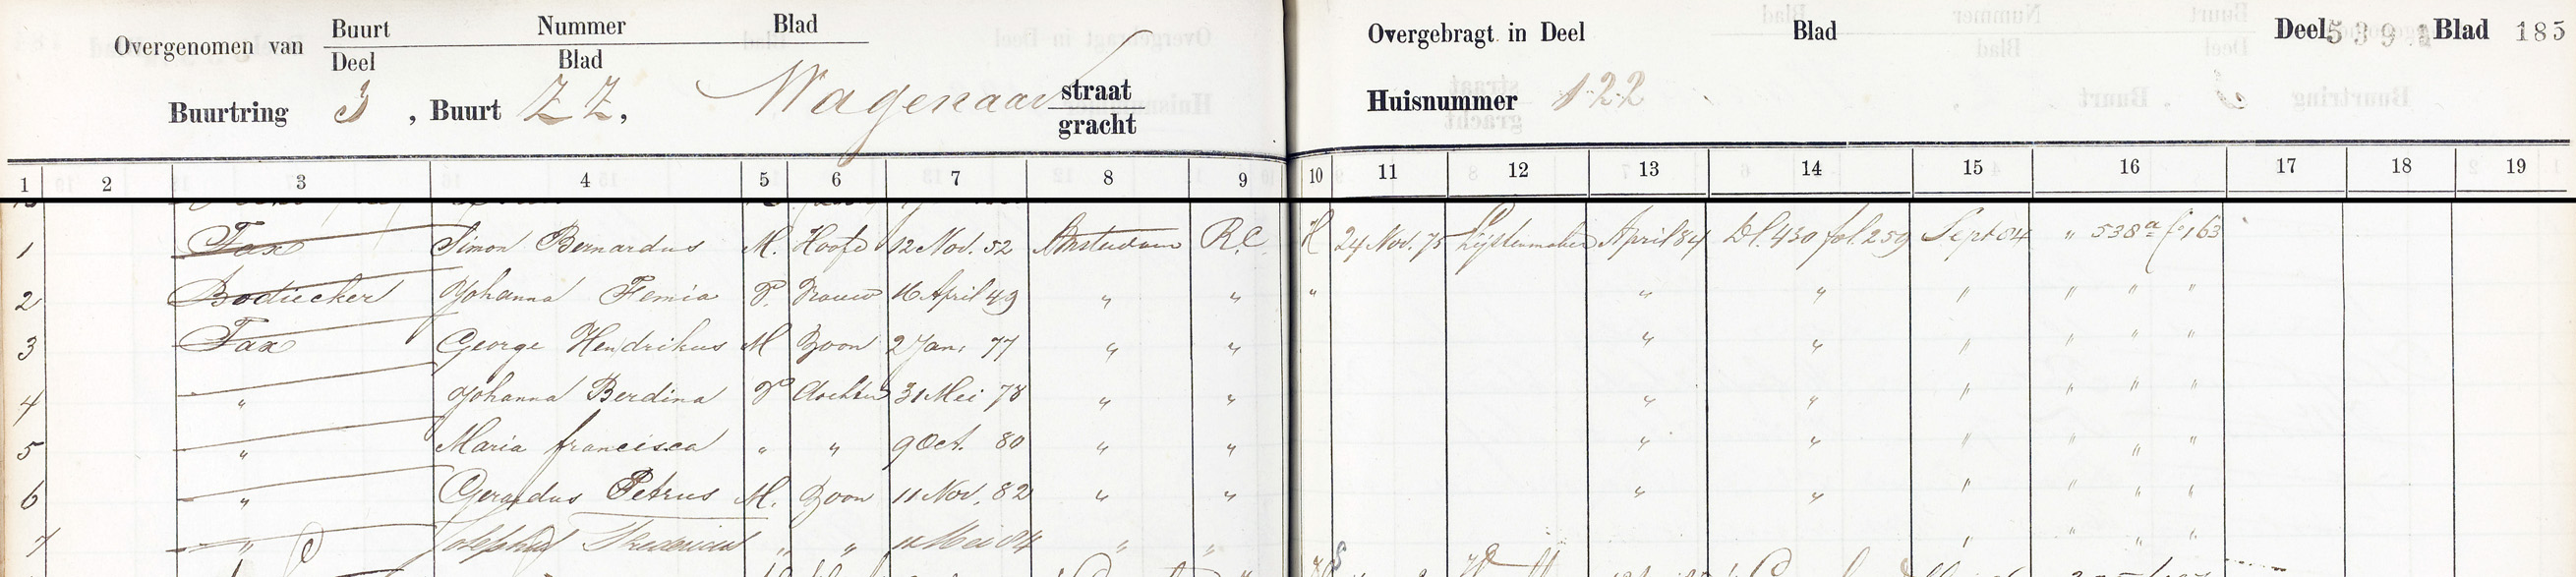 Overgenomen van Buurt Nummer Blad
Deel Blad
Buurtring 3, Buurt ZZ, Wagenaar straat
gracht
Overgebragt in Deel Blad Deel 539 Blad 185
Huisnummer 122
1 2 3 4 5 6 7 8 9 10 11 12 13 14 15 16 17 18 19
1 Fax Simon Bernardus M. Hoofd 12 Nov. 52 Amsterdam R.C. H 24 Nov. 75 Lijstenmaker April 84 Dl. 430 fol. 259 Sept 84 " 538a fo 163
2 Bodiecker Johanna Femia V. Vrouw 16 April 49 " " " " " " " " "
3 Fax George Hendrikus M Zoon 2 Jan. 77 " " " " " " " "
4 " Johanna Berdina V Dochter 31 Mei 78 " " " " " " " "
5 " Maria francisca " " 9 Oct. 80 " " " " " " " "
6 " Gerardus Petrus M. Zoon 11 Nov. 82 " " " " " " " "
7 " Josephus " " 11 Mei 84 " " " " " "